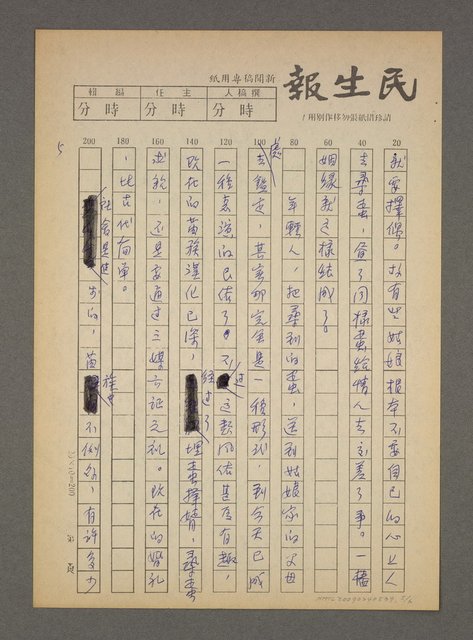 民生報
新聞稿專用紙
請珍惜紙張勿移作別用!
撰稿人 主任 編輯
時 分 時 分 時 分
20 40 60 80 100 120 140 160 180 200
就要擇偶。也有些姑娘根本不要自己的心上人
去尋蛋,拿了同樣蛋給情人去交差了事。一樁
姻緣就這樣結成了。
年輕人,把尋到的蛋,送到姑娘家的父母
處去鑑定,其實那完全是一種形式,到今天已成
一種表演的民俗了。不過這類風俗甚為有趣,
現在的苗族漢化已深,經過了埋蛋擇婿,尋蛋
求親,還是要通過三媒六證之禮。現在的婚禮
,比古代簡單。
社會是進步的,苗族也不例外,有許多少
5
第 頁
NMTL20090240539, 5/6